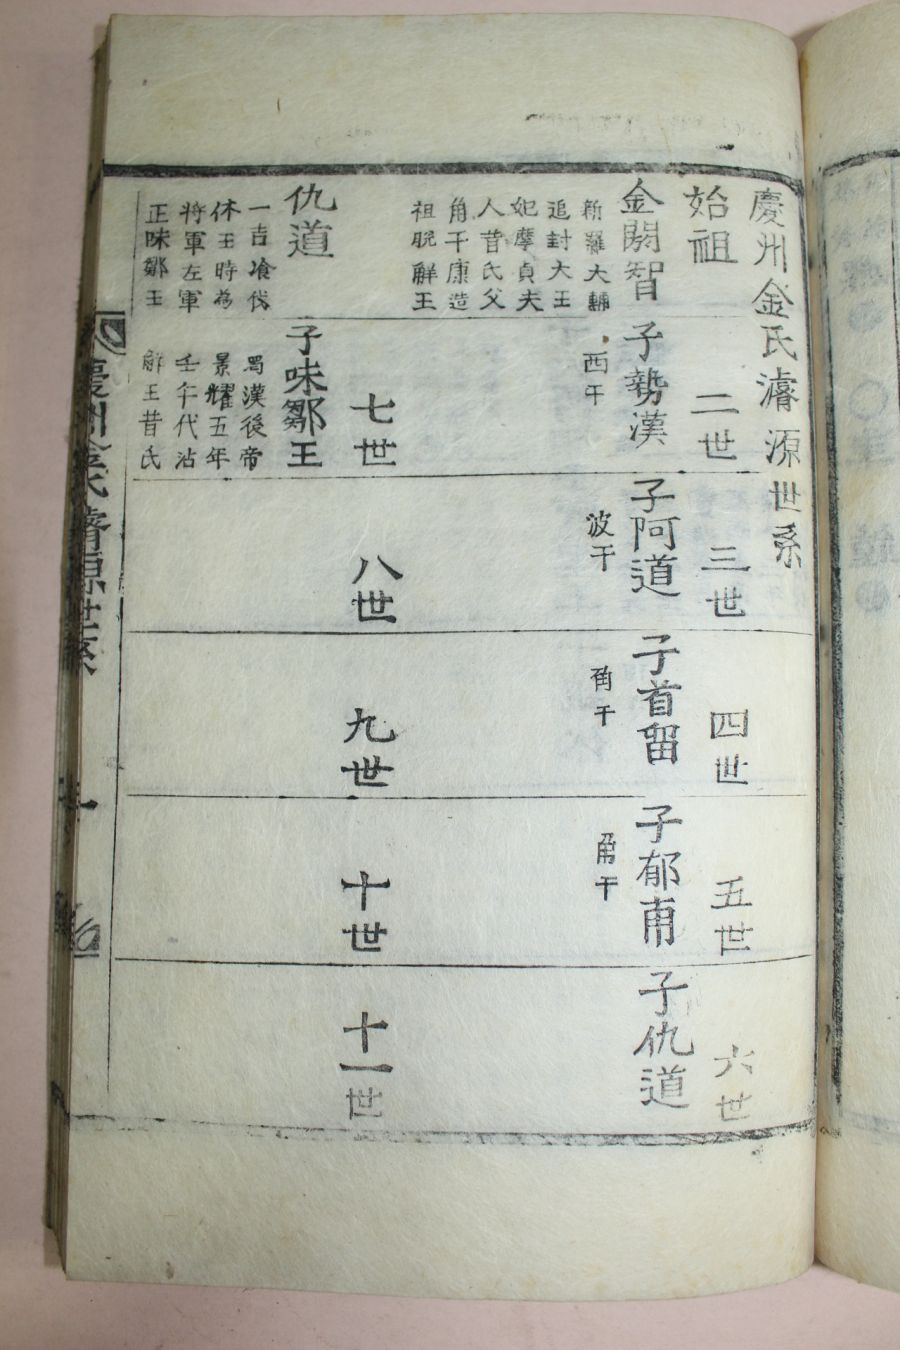 慶州金氏濬源世系
始祖
二世
三世
四世
五世
六世
金閼智
新羅大輔
追封大王
妃摩貞夫
人昔氏父
角干康造
祖脫解王
子勢漢
西干
子阿道
波干
子首留
角干
子郁甫
角干
子仇道
七世
八世
九世
十世
十一世
仇道
一吉飡伐
休王時為
將軍左軍
正味鄒王
子味鄒王
蜀漢後帝
景耀五年
壬午代沾
解王昔氏
慶州金氏濬源世系
一